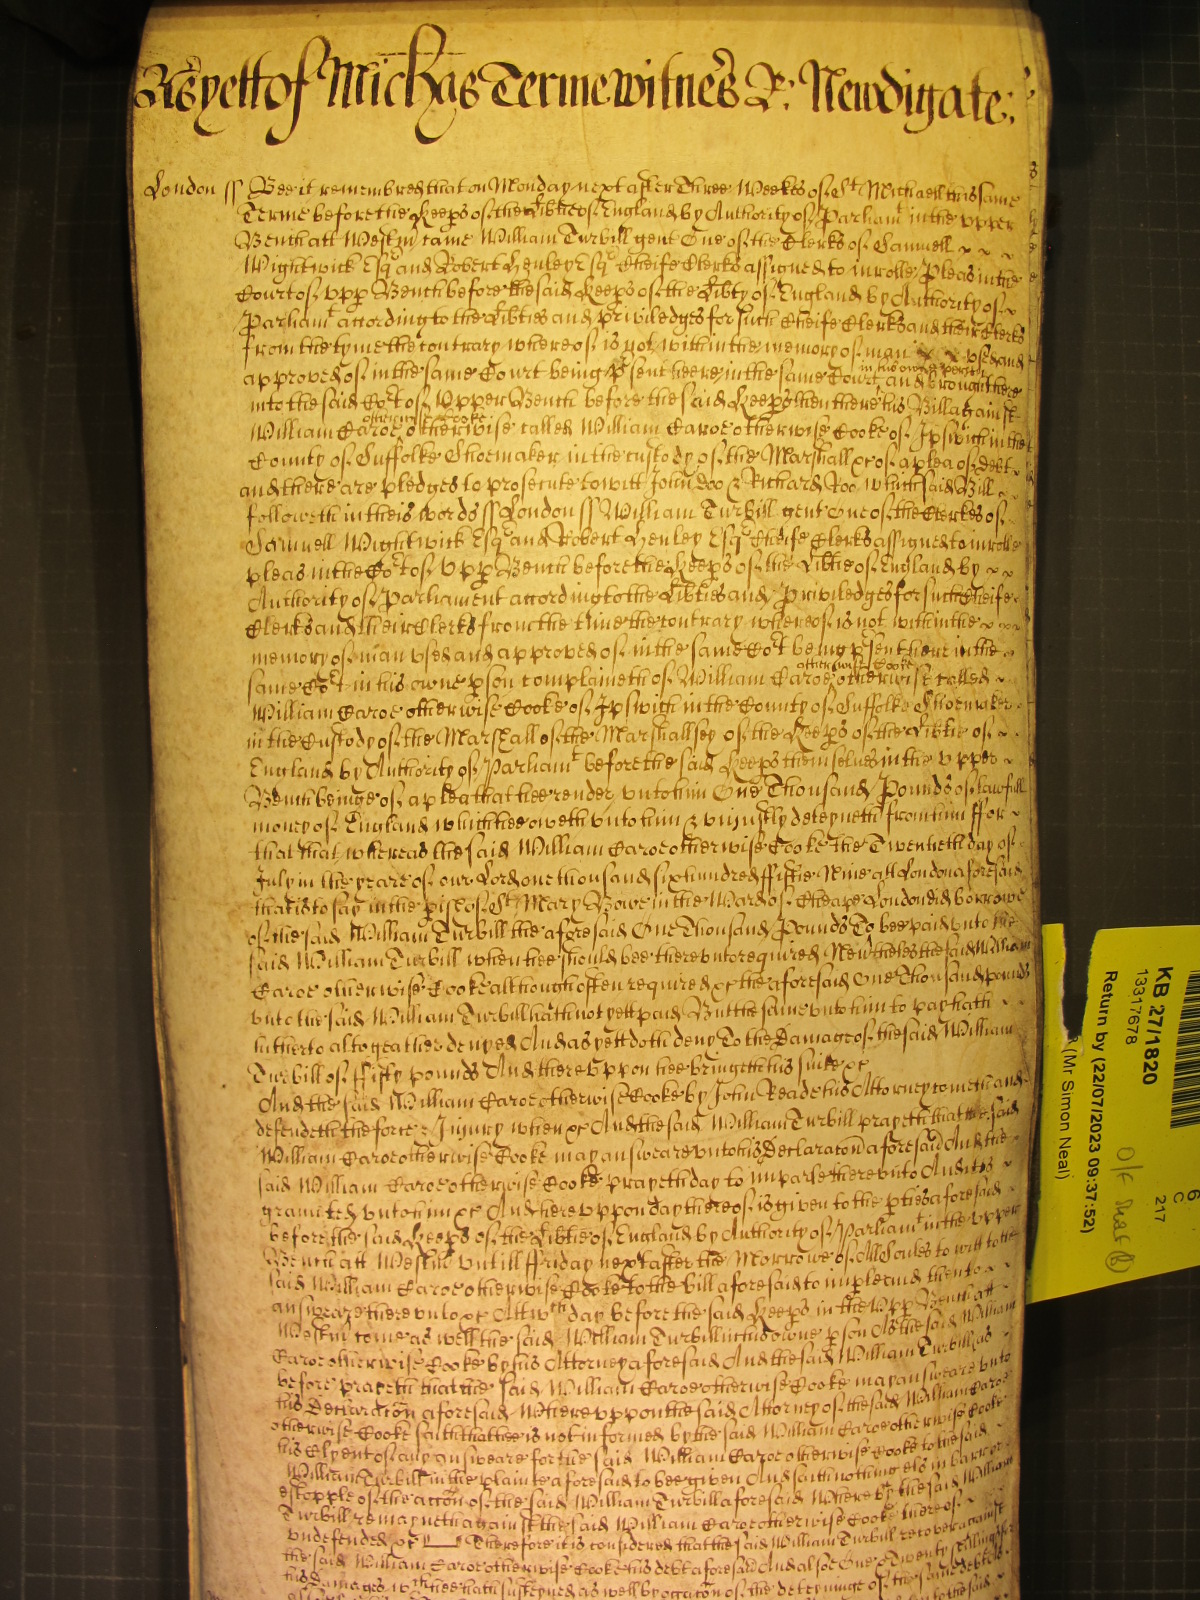 As yett of Michas Terme witnes R: Newdigate:
London ss Bee it remembred that on Monday next after Three Weekes of St Michaell this same
Terme before the Keeps of the Libtie of England by Authority of Parliamt in the upper
Bench att Westm came William Turbill gent One of the Clerks of Samuell
Wightwick Esqr and Robert Henley Esqr Cheife Clerks assigned to inrolle Pleas in the
Court of upp Bench before the said Keeps of the Libty of England by Authority of
Parliamt according to the Libties and priviledges for such Cheife Clerks and their Clerks
from the tyme the contrary whereof is not within the memory of man used and
approved of in the same Court being psent heere in the same Court in his owne person and brought here
into the said Cort of Upper Bench before the said Keeps then there his Bill against
William Caroe otherwise Cooke otherwise called William Caroe otherwise Cooke of Ipswich in the
County of Suffolke Shoemaker in the custody of the Marshall &c of a plea of debt
and there are pledges to prosecute to witt John Doo & Richard Roo which said Bill
followeth in theis words ss London ss William Turbill gent One of the Clerkes of
Samuell Wightwick Esqr and Robert Henley Esqr Cheife Clerks assigned to inrolle
pleas in the Cort of Upp Bench before the Keeps of the Libtie of England by
Authority of Parliament according to the Libties and Priviledges for such Cheife
Clerks and their Clerks from the time the contrary whereof is not within the
memory of man used and approved of in the same Cort being psent heere in the
same Cort in his owne pson complaineth of William Caroe otherwise Cooke otherwise called
William Caroe otherwise Cooke of Ipswich in the County of Suffolke Shoemaker
in the Custody of the Marshall of the Marshallsey of the Keeps of the Libtie of
England by Authority of Parliamt before the said Keeps themselves in the upper
Bench beinge of a plea that hee render unto him One Thousand Pounds of lawfull
money of England which hee oweth unto him & unjustly deteyneth from him ffor
that that whereas the said William Caroe otherwise Cooke the Twentieth day of
July in the yeare of our Lord one thousand six hundred ffiftie Nine att London aforesaid
that is to say in the pish of St Mary Bowe in the Ward of Cheape London did borrowe
of the said William Turbill the aforesaid One Thousand Pounds To bee paid unto the
said William Turbill when hee should bee thereunto required Neverthelesse the said William
Caroe otherwise Cooke although often required &c the aforesaid One Thousand pounds
unto the said William Turbill hath not yett paid But the same unto him to pay hath
hitherto altogeather denyed And as yett doth deny To the Damage of the said William
Turbill of Fifty pounds And thereuppon hee bringeth his suite &c
And the said William Caroe otherwise Cooke by John Reade his Attorney cometh and
defendeth the force & Injury when &c And the said William Turbill prayeth that the said
William Caroe otherwise Cooke may answeare unto his Declaracon aforesaid And the
said William Caroe otherwise Cooke prayeth day to imparle thereunto And it is
graunted unto him &c And hereuppon day thereof is given to the pties aforesaid
before the said Keeps of the Libtie of England by Authority of Parliamt in the upper
Bench att Westm untill ffriday next after the Morrowe of All Soules to witt to the
said William Caroe otherwise Cooke to the bill aforesaid to imple and then to
answeare thereunto &c Att wch day before the said Keeps in the Upp Bench att
Westm come as well the said William Turbill in his owne pson As the said William
Caroe otherwise Cooke by his Attorney aforesaid And the said William Turbill as
before prayeth that the said William Caroe otherwise Cooke may answeare unto
his Declaracon aforesaid Whereuppon the said Attorney of the said William Caroe
otherwise Cooke saith that hee is not informed by the said William Caroe otherwise Cooke
his Clyent of any answeare for the said William Caroe otherwise Cooke to the said
William Turbill in the plainte aforesaid to bee given And saith nothing els in barr or
estopple of the accon of the said William Turbill aforesaid Whereby the said William
Turbill remayneth against the said William Caroe otherwise Cooke thereof
undefended &c Therefore it is considered that the said William Turbill recover against
the said William Caroe otherwise Cooke his debt aforesaid And alsoe One & Twenty shillings for
his Damages wch hee hath susteyned as well by occacon of the deteyninge of the same debt
KB 27/1820
13317678
Return by (22/07/2023 09:37:52)
(Mr. Simon Neal)
6
C
217